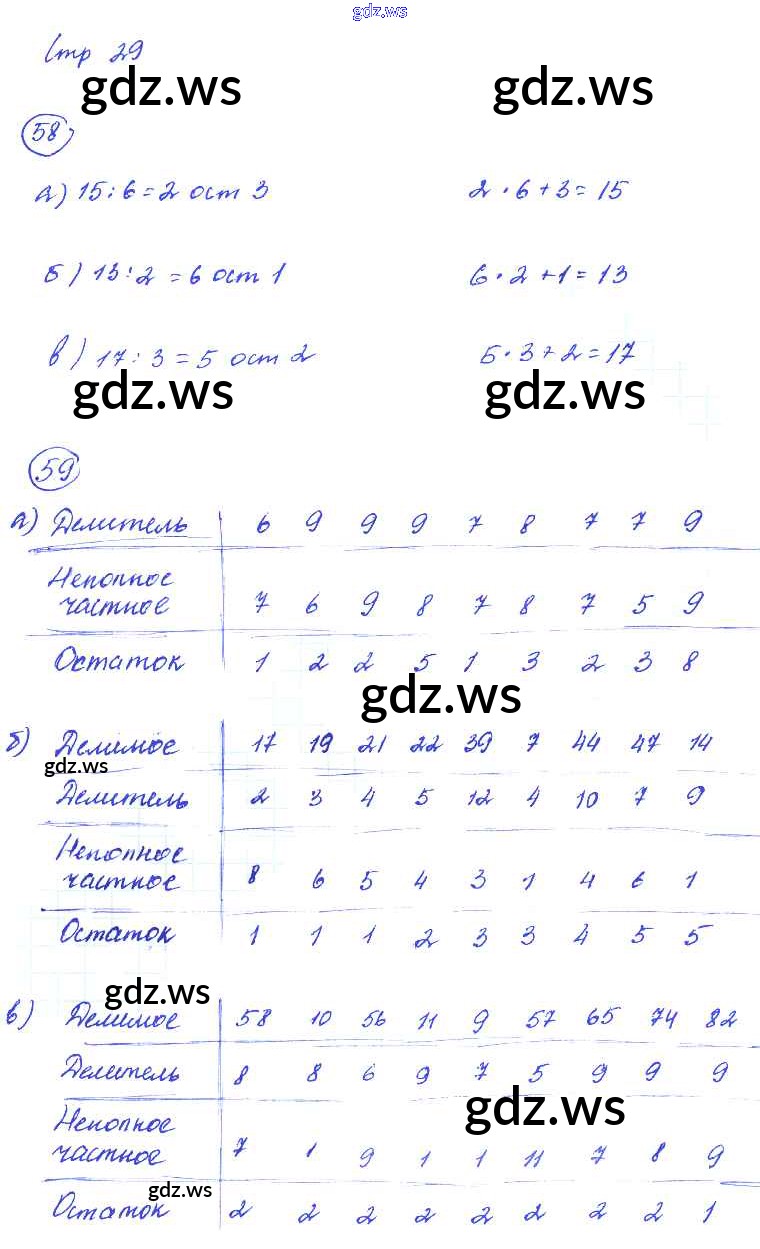 gdz.ws
Стр 29
gdz.ws gdz.ws
58
а) 15:6=2 ост 3 2·6+3=15
б) 13:2=6 ост 1 6·2+1=13
в) 17:3=5 ост 2 5·3+2=17
gdz.ws gdz.ws
59
а) Делитель 6 9 9 9 7 8 7 7 9
Неполное
частное 7 6 9 8 7 8 7 5 9
Остаток 1 2 2 5 1 3 2 3 8
gdz.ws
б) Делимое 17 19 21 22 39 7 44 47 14
gdz.ws
Делитель 2 3 4 5 12 4 10 7 9
Неполное
частное 8 6 5 4 3 1 4 6 1
Остаток 1 1 1 2 3 3 4 5 5
gdz.ws
в) Делимое 58 10 56 11 9 57 65 74 82
Делитель 8 8 6 9 7 5 9 9 9
gdz.ws
Неполное
частное 7 1 9 1 1 11 7 8 9
gdz.ws
Остаток 2 2 2 2 2 2 2 2 1